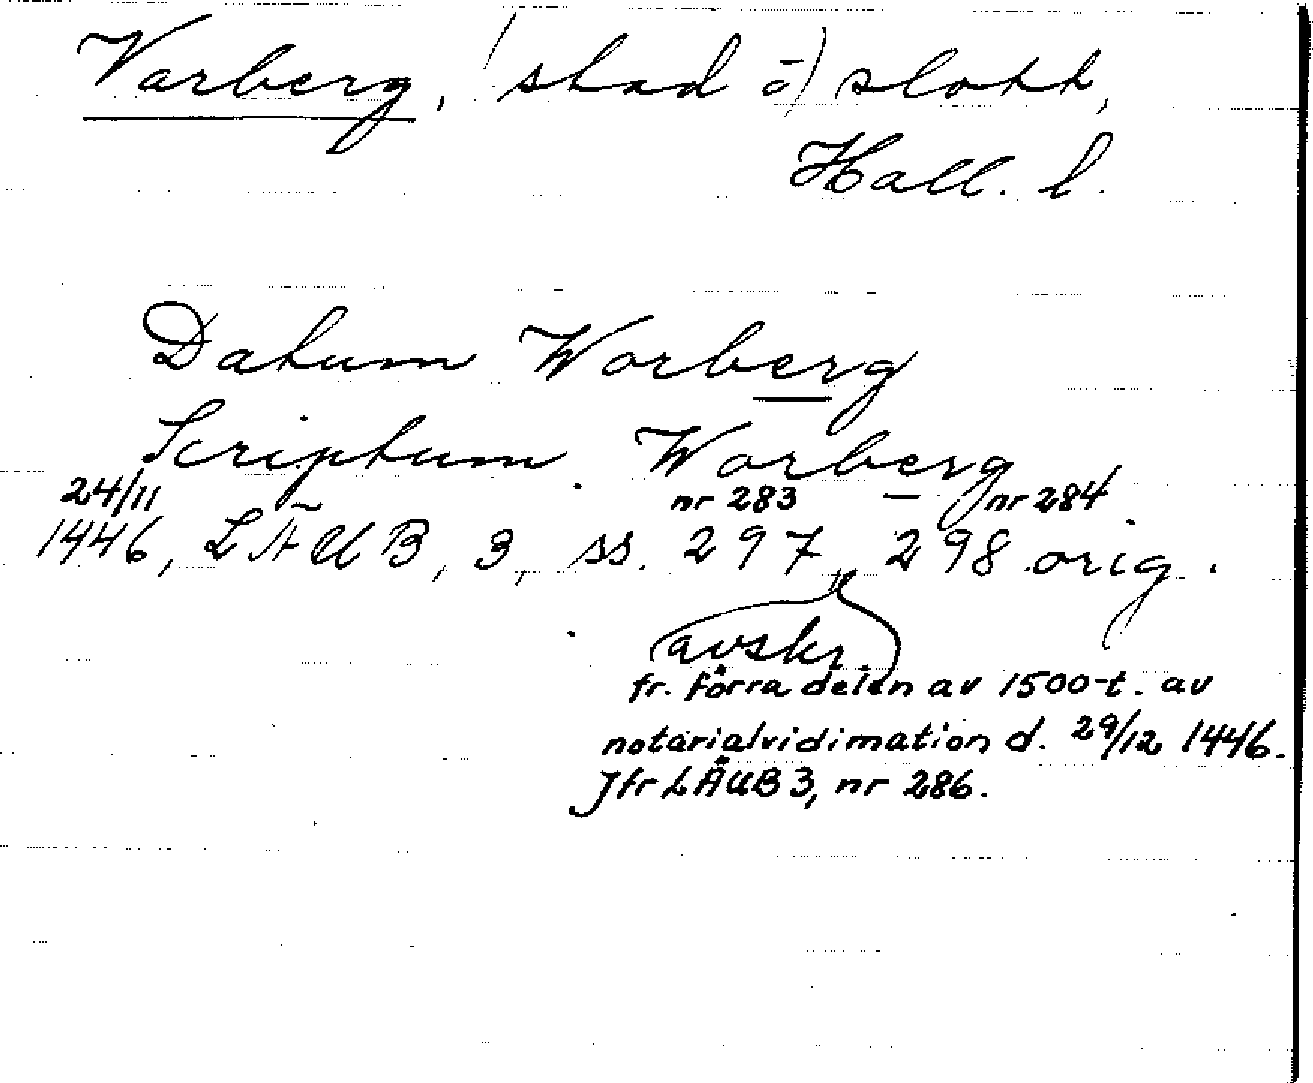 Varberg, (stad o) slott,
Hall. l.
Datum Worberg
Scriptum Worberg
24/11 nr 283 nr 284
1446, LÄUB, 3, ss. 297, 298 orig.
(avskr.)
fr. förra delen av 1500-t. av
notarialvidimation d. 29/12 1446.
Jfr LÄUB 3, nr 286.